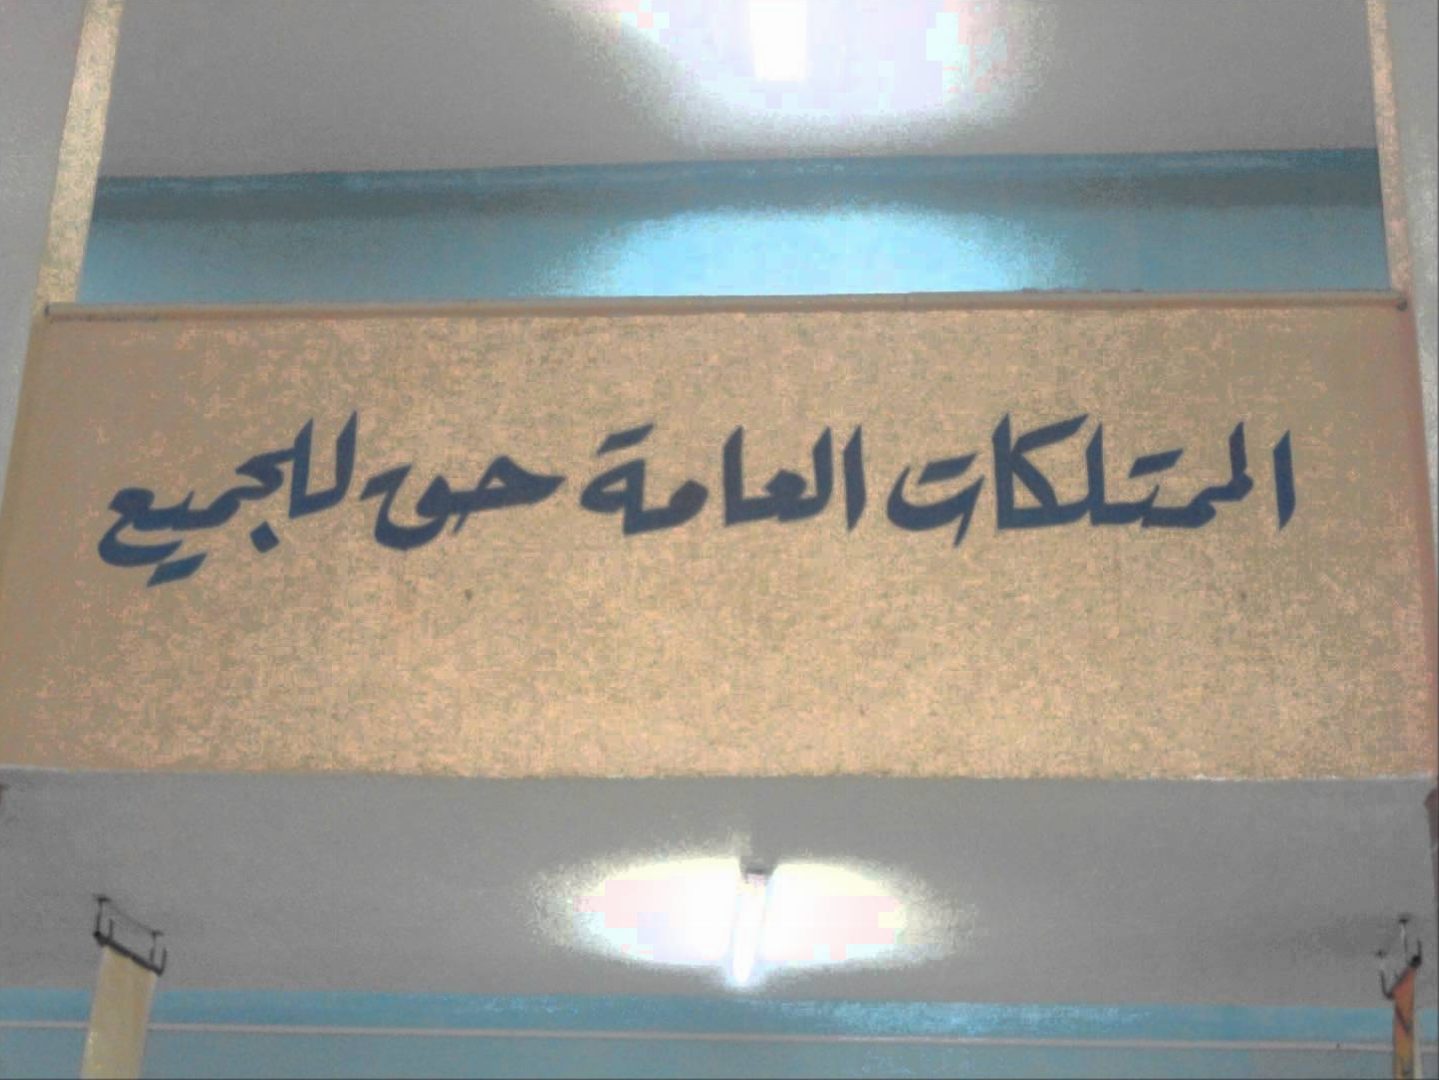 الممتلكات العامة حق للجميع